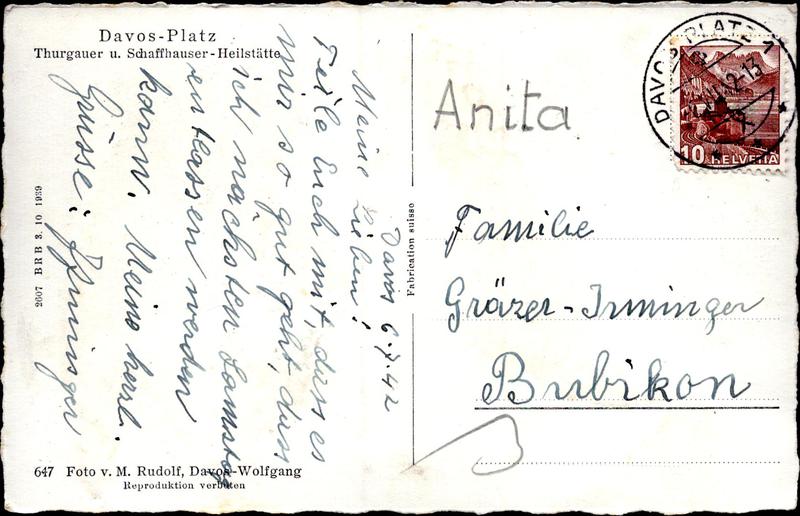 Davos-Platz
Thurgauer u. Schaffhauser-Heilstätte
Davos 6.7.42
Meine Lieben!
Teile Euch mit, dass es
mir so gut geht, dass
ich nächsten Samstag
entlassen werden
kann. Meine herzl.
Grüsse:
2607 BRB 3. 10. 1939
647 Foto v. M. Rudolf, Davos-Wolfgang
Reproduktion verboten
Fabrication suisse
Anita
DAVOS PLATZ 1
10 HELVETIA
Familie
Gräzer-Irminger
Bubikon